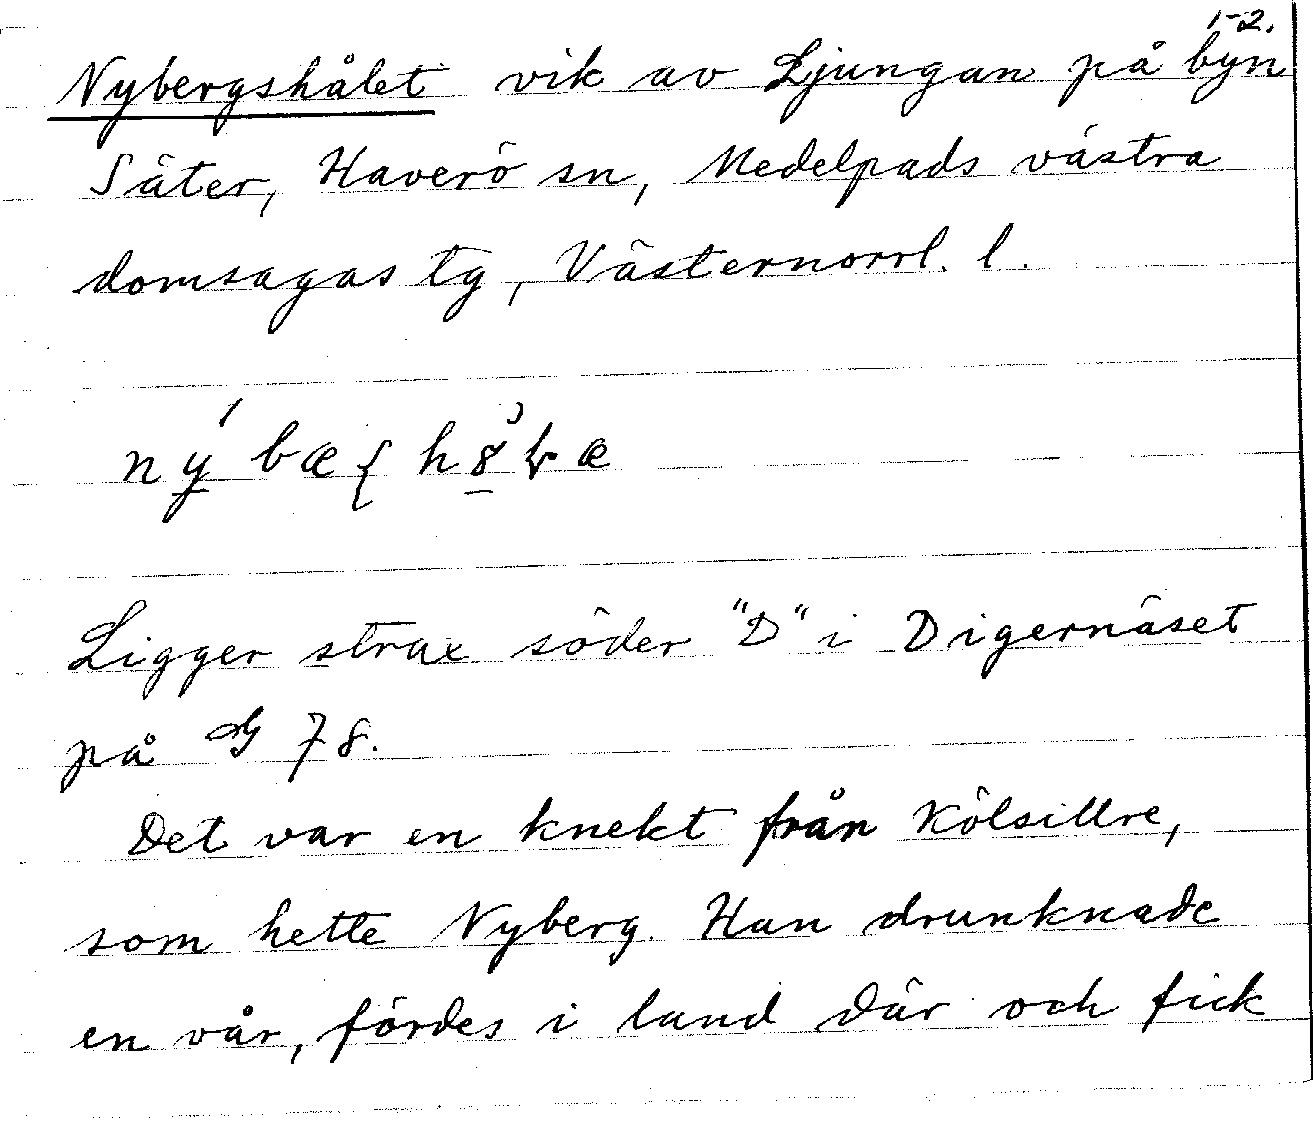 1-2.
Nybergshålet vik av Ljungan på byn
Säter, Haverö sn, Medelpads västra
domsagas tg, Västernorrl. l.
Ligger strax söder "D" i Digernäset
på G 78.
Det var en knekt från Kölsillre,
som hette Nyberg. Han drunknade
en vår, fördes i land där och fick